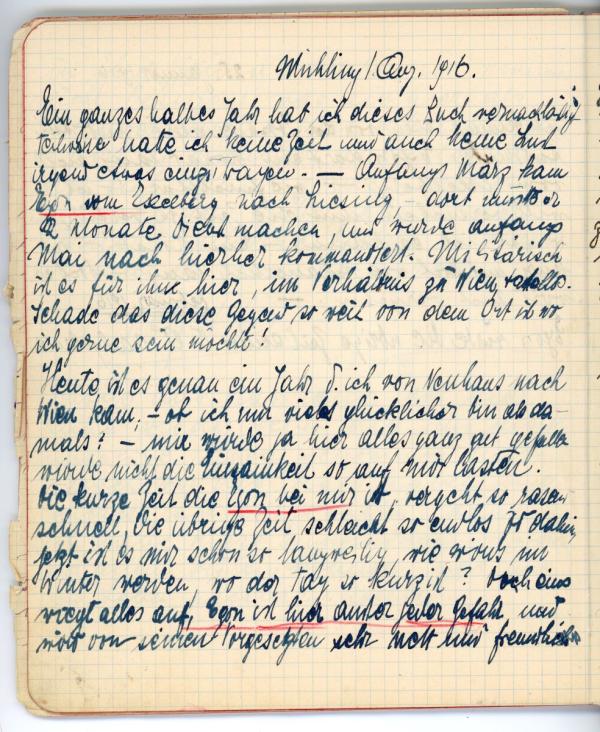 Mühling 1 Aug. 1916.
Ein ganzes halbes Jahr hat ich dieses Buch vernachläßig
teilweise hate ich keine Zeit und auch keine Lust
irgend etwas einzutragen. — Anfangs März kam
Egon vom Exelberg nach Liesing, - dort mußte er
2 Monate Dienst machen, und wurde anfangs
Mai nach hierher kommandiert. Militärisch
ist es für ihn hier, im Verhältnis zu Wien,
Schade das diese Gegend so weit von dem Ort ist wo
ich gerne sein möchte!
Heute ist es genau ein Jahr d. ich von Neuhaus nach
Wien kam, - ob ich nur vieles glücklicher bin als da-
mals? - mir würde ja hier alles ganz gut gefallen
würde nicht die Einsamkeit so auf mir lasten.
Die kurze Zeit die Egon bei mir ist, vergeht so rasend
schnell, die übrige Zeit, schleicht so endlos dahin,
jetzt ist es mir schon so langweilig, wie wirds im
Winter werden, wo der Tag so kurz ist? Doch eins
wiegt alles auf, Egon ist hier außer jeder Gefahr, und
wird von seinen Vorgesetzten sehr nett und freundlich